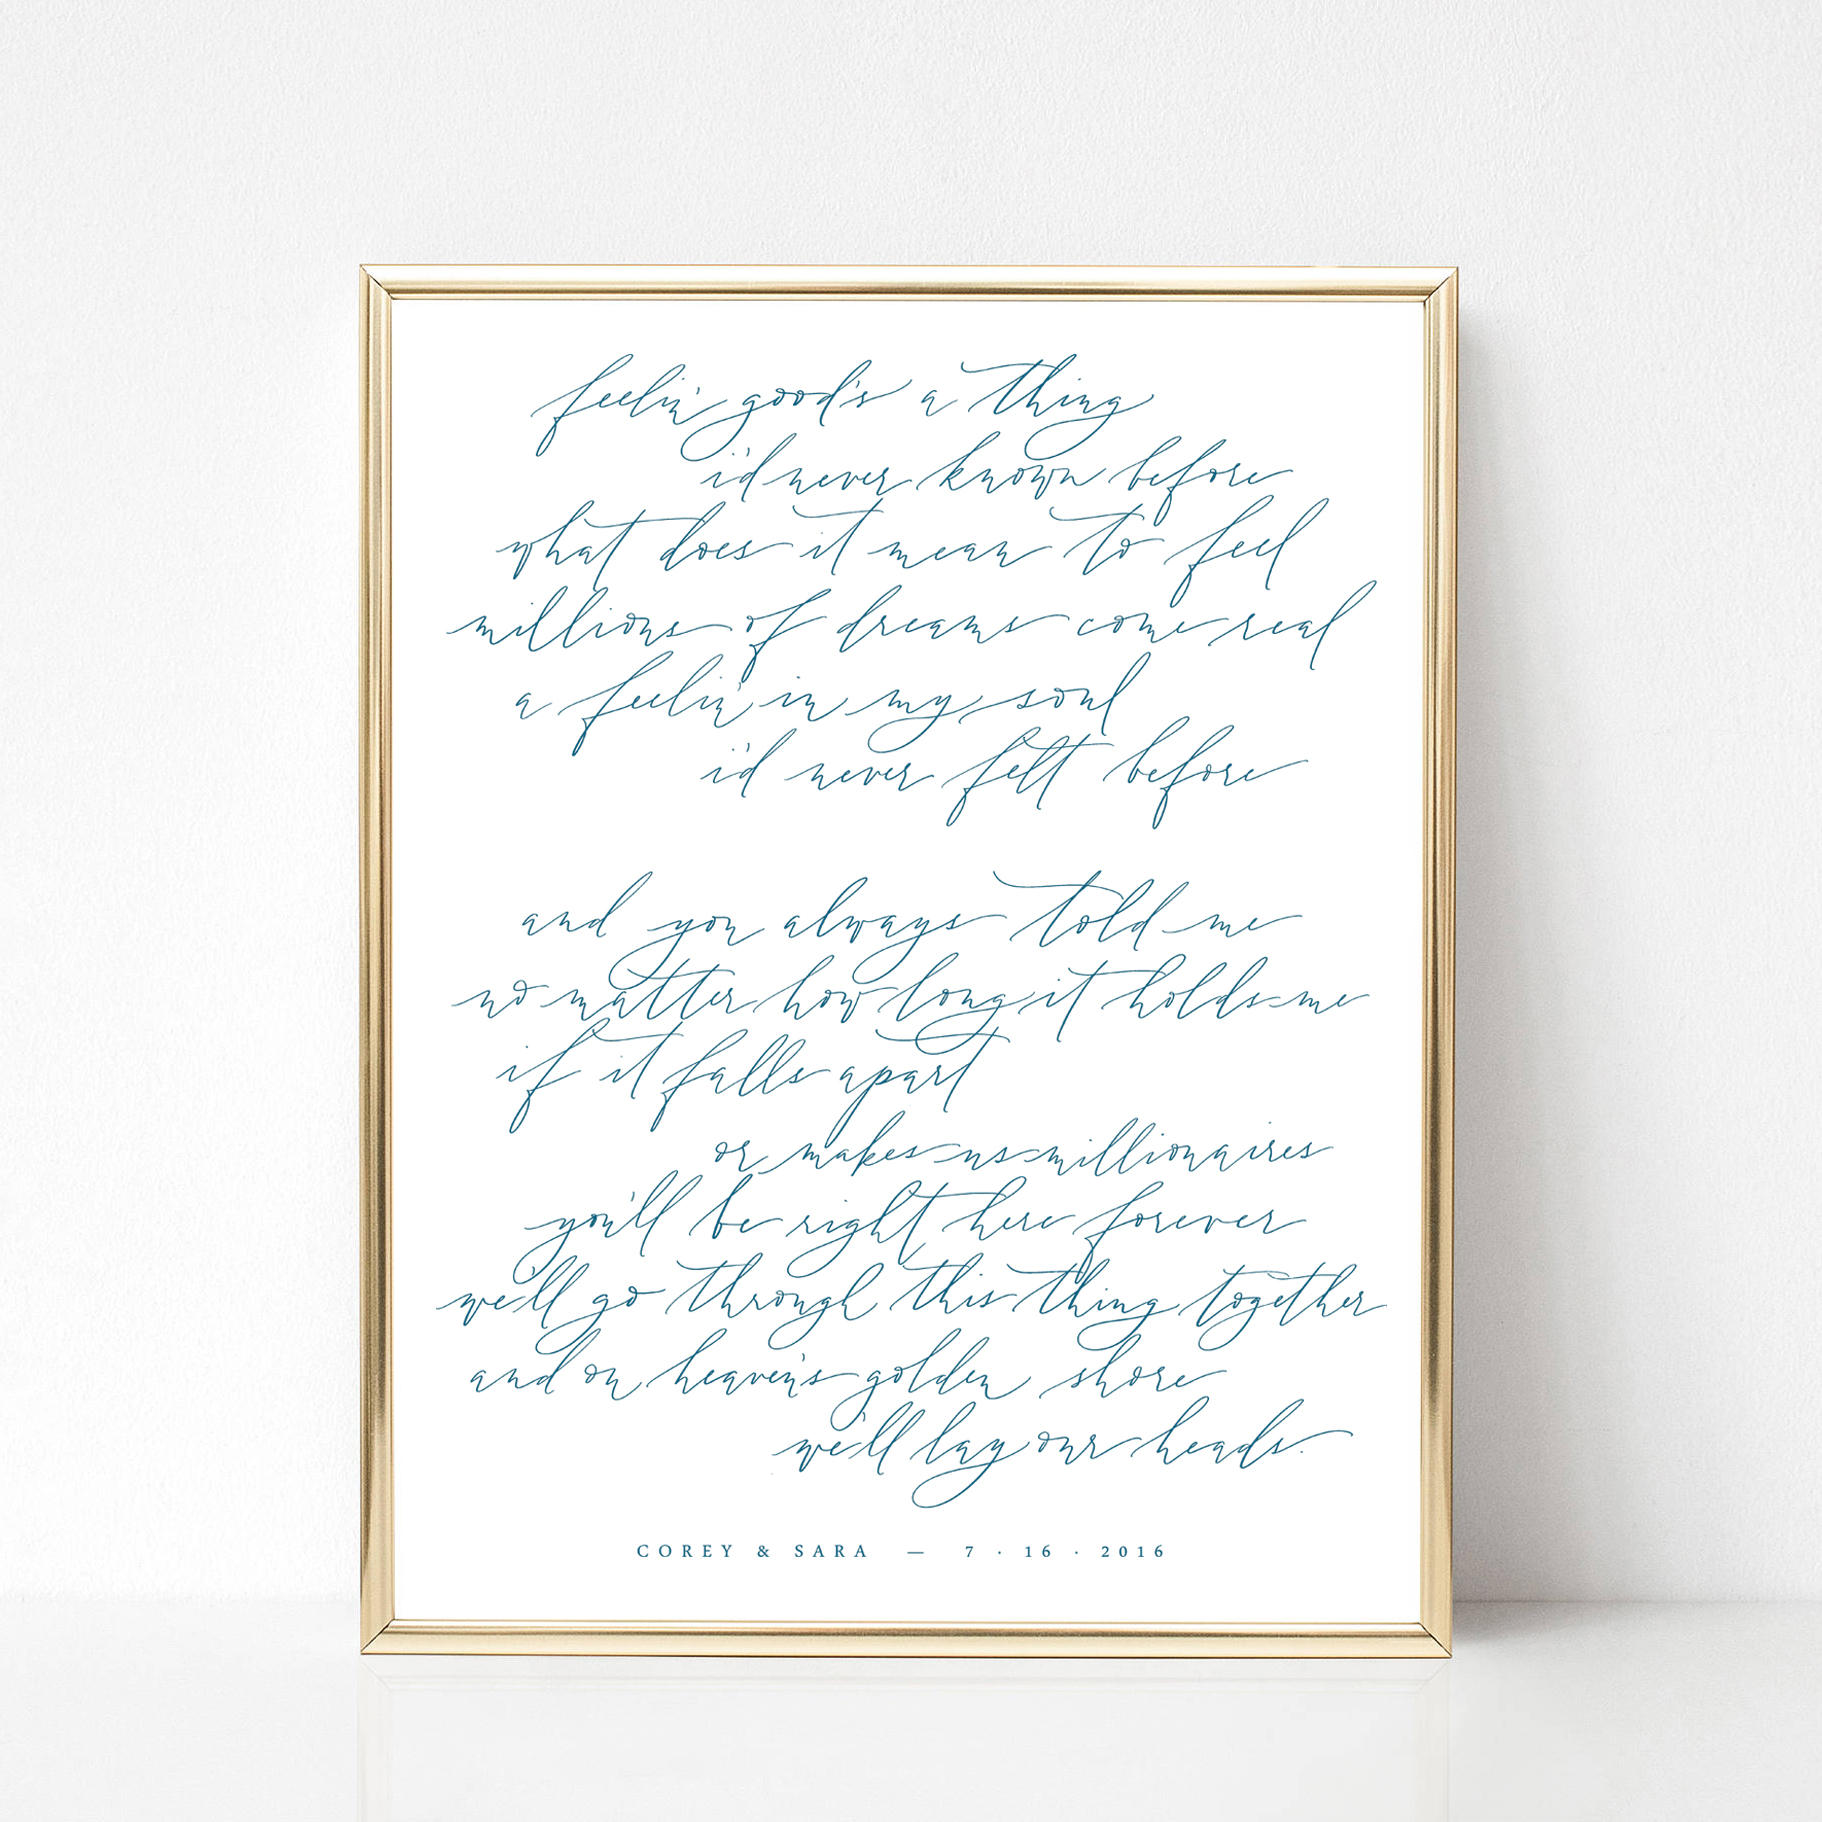 feelin' good's a thing
i'd never known before
what does it mean to feel
millions of dreams come real
a feelin' in my soul
i'd never felt before
and you always told me
no matter how long it holds me
if it falls apart
or makes us millionaires
you'll be right here forever
we'll go through this thing together
and on heaven's golden shore
we'll lay our heads.
COREY & SARA — 7 · 16 · 2016